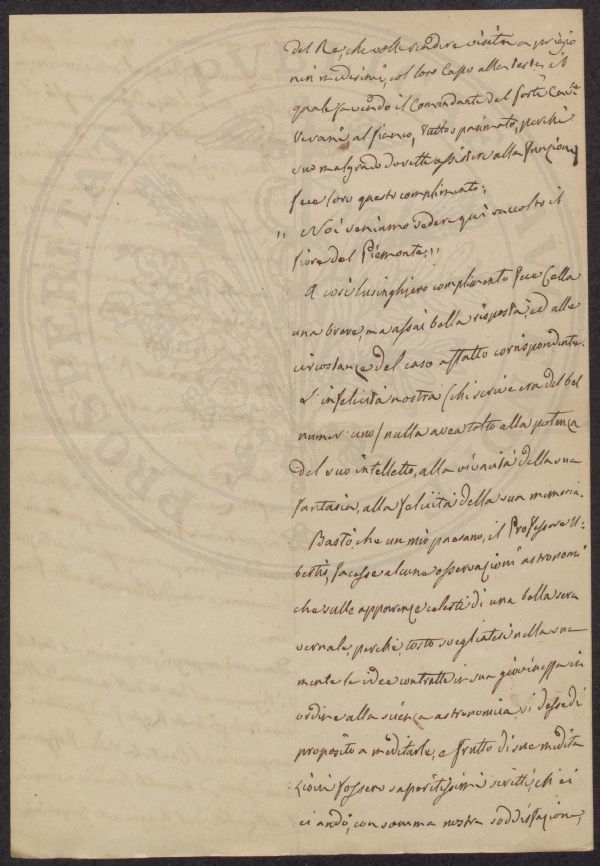 del Re, che volle rendere visita a' prigio
nieri medesimi, col loro Capo alla testa, il
quale facendo il Comandante del forte
al fianco, tutto spasimato, perchè
suo malgrado dovette assistere alla funzione
fece loro questo complimento:
" Noi veniamo vedere qui raccolto il
fiore del Piemonte,"
A così lusinghiero complimento fece Cella
una breve, ma assai bella risposta, ed alle
circostanze del caso affatto corrispondente.
L'infelicità nostra (chi scrive era del bel
numer'uno) nulla avea tolto alla potenza
del suo intelletto, alla vivacità della sua
fantasia, alla felicità della sua memoria.
Bastò, che un mio paesano, il Professore U:
bertis, facesse alcune osservazioni astronomi
che sulle apparenze celesti di una bella sera
vernale, perchè, tosto svegliatesi nella sua
mente le idee contratte in sua giovinezza in
ordine alla scienza astronomica, si desse di
proposito a meditarle, e frutto di sue medita
zioni fossero saporitissimi scritti, ch'ei
ci andò, con somma nostra soddisfazione,
PIORUM